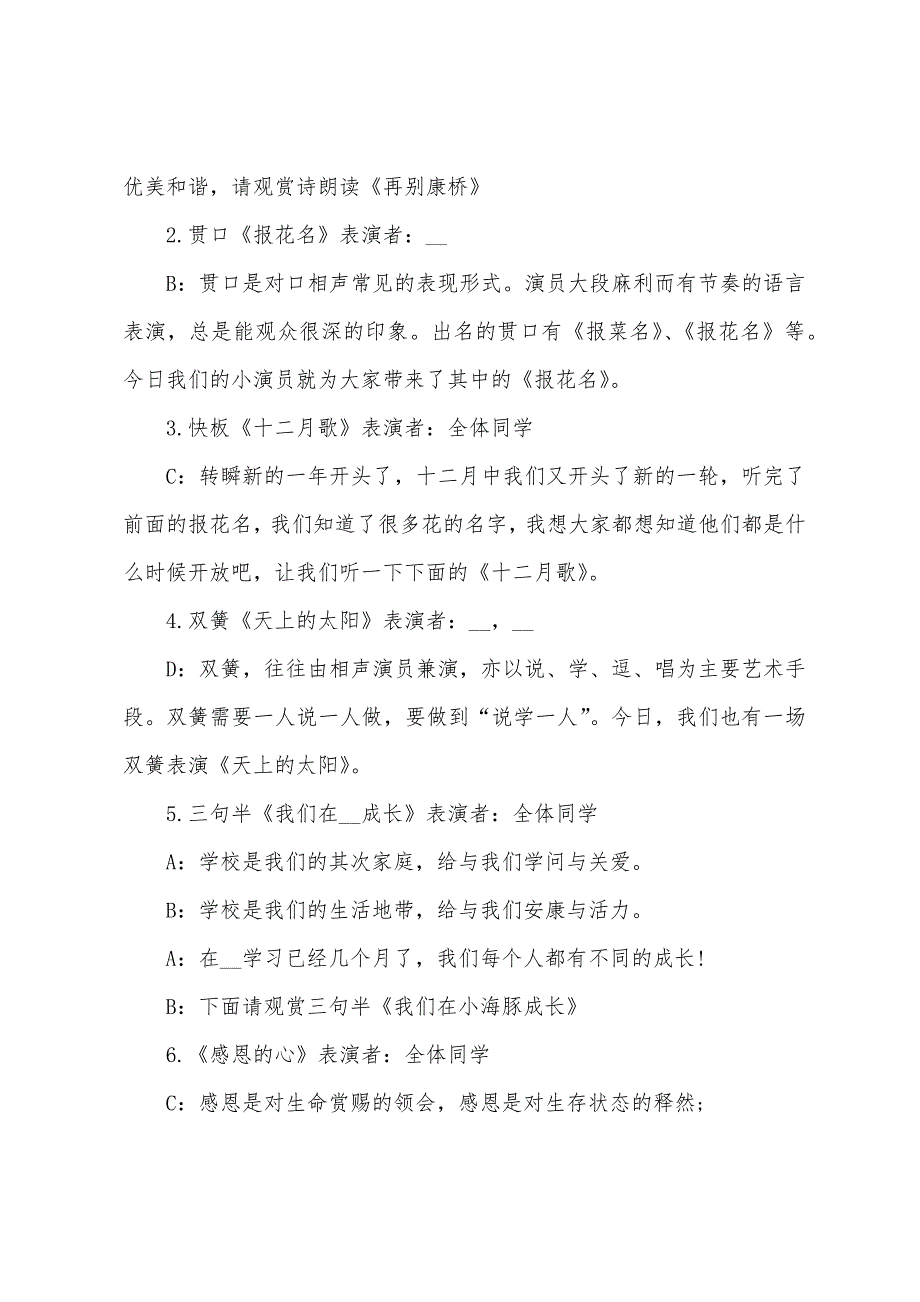 优美和谐，请观赏诗朗读《再别康桥》
2.贯口《报花名》表演者：__
B：贯口是对口相声常见的表现形式。演员大段麻利而有节奏的语言
表演，总是能观众很深的印象。出名的贯口有《报菜名》、《报花名》等。
今日我们的小演员就为大家带来了其中的《报花名》。
3.快板《十二月歌》表演者：全体同学
C：转瞬新的一年开头了，十二月中我们又开头了新的一轮，听完了
前面的报花名，我们知道了很多花的名字，我想大家都想知道他们都是什
么时候开放吧，让我们听一下下面的《十二月歌》。
4.双簧《天上的太阳》表演者：__，__
D：双簧，往往由相声演员兼演，亦以说、学、逗、唱为主要艺术手
段。双簧需要一人说一人做，要做到“说学一人”。今日，我们也有一场
双簧表演《天上的太阳》。
5.三句半《我们在__成长》表演者：全体同学
A：学校是我们的其次家庭，给与我们学问与关爱。
B：学校是我们的生活地带，给与我们安康与活力。
A：在__学习已经几个月了，我们每个人都有不同的成长!
B：下面请观赏三句半《我们在小海豚成长》
6.《感恩的心》表演者：全体同学
C：感恩是对生命赏赐的领会，感恩是对生存状态的释然;